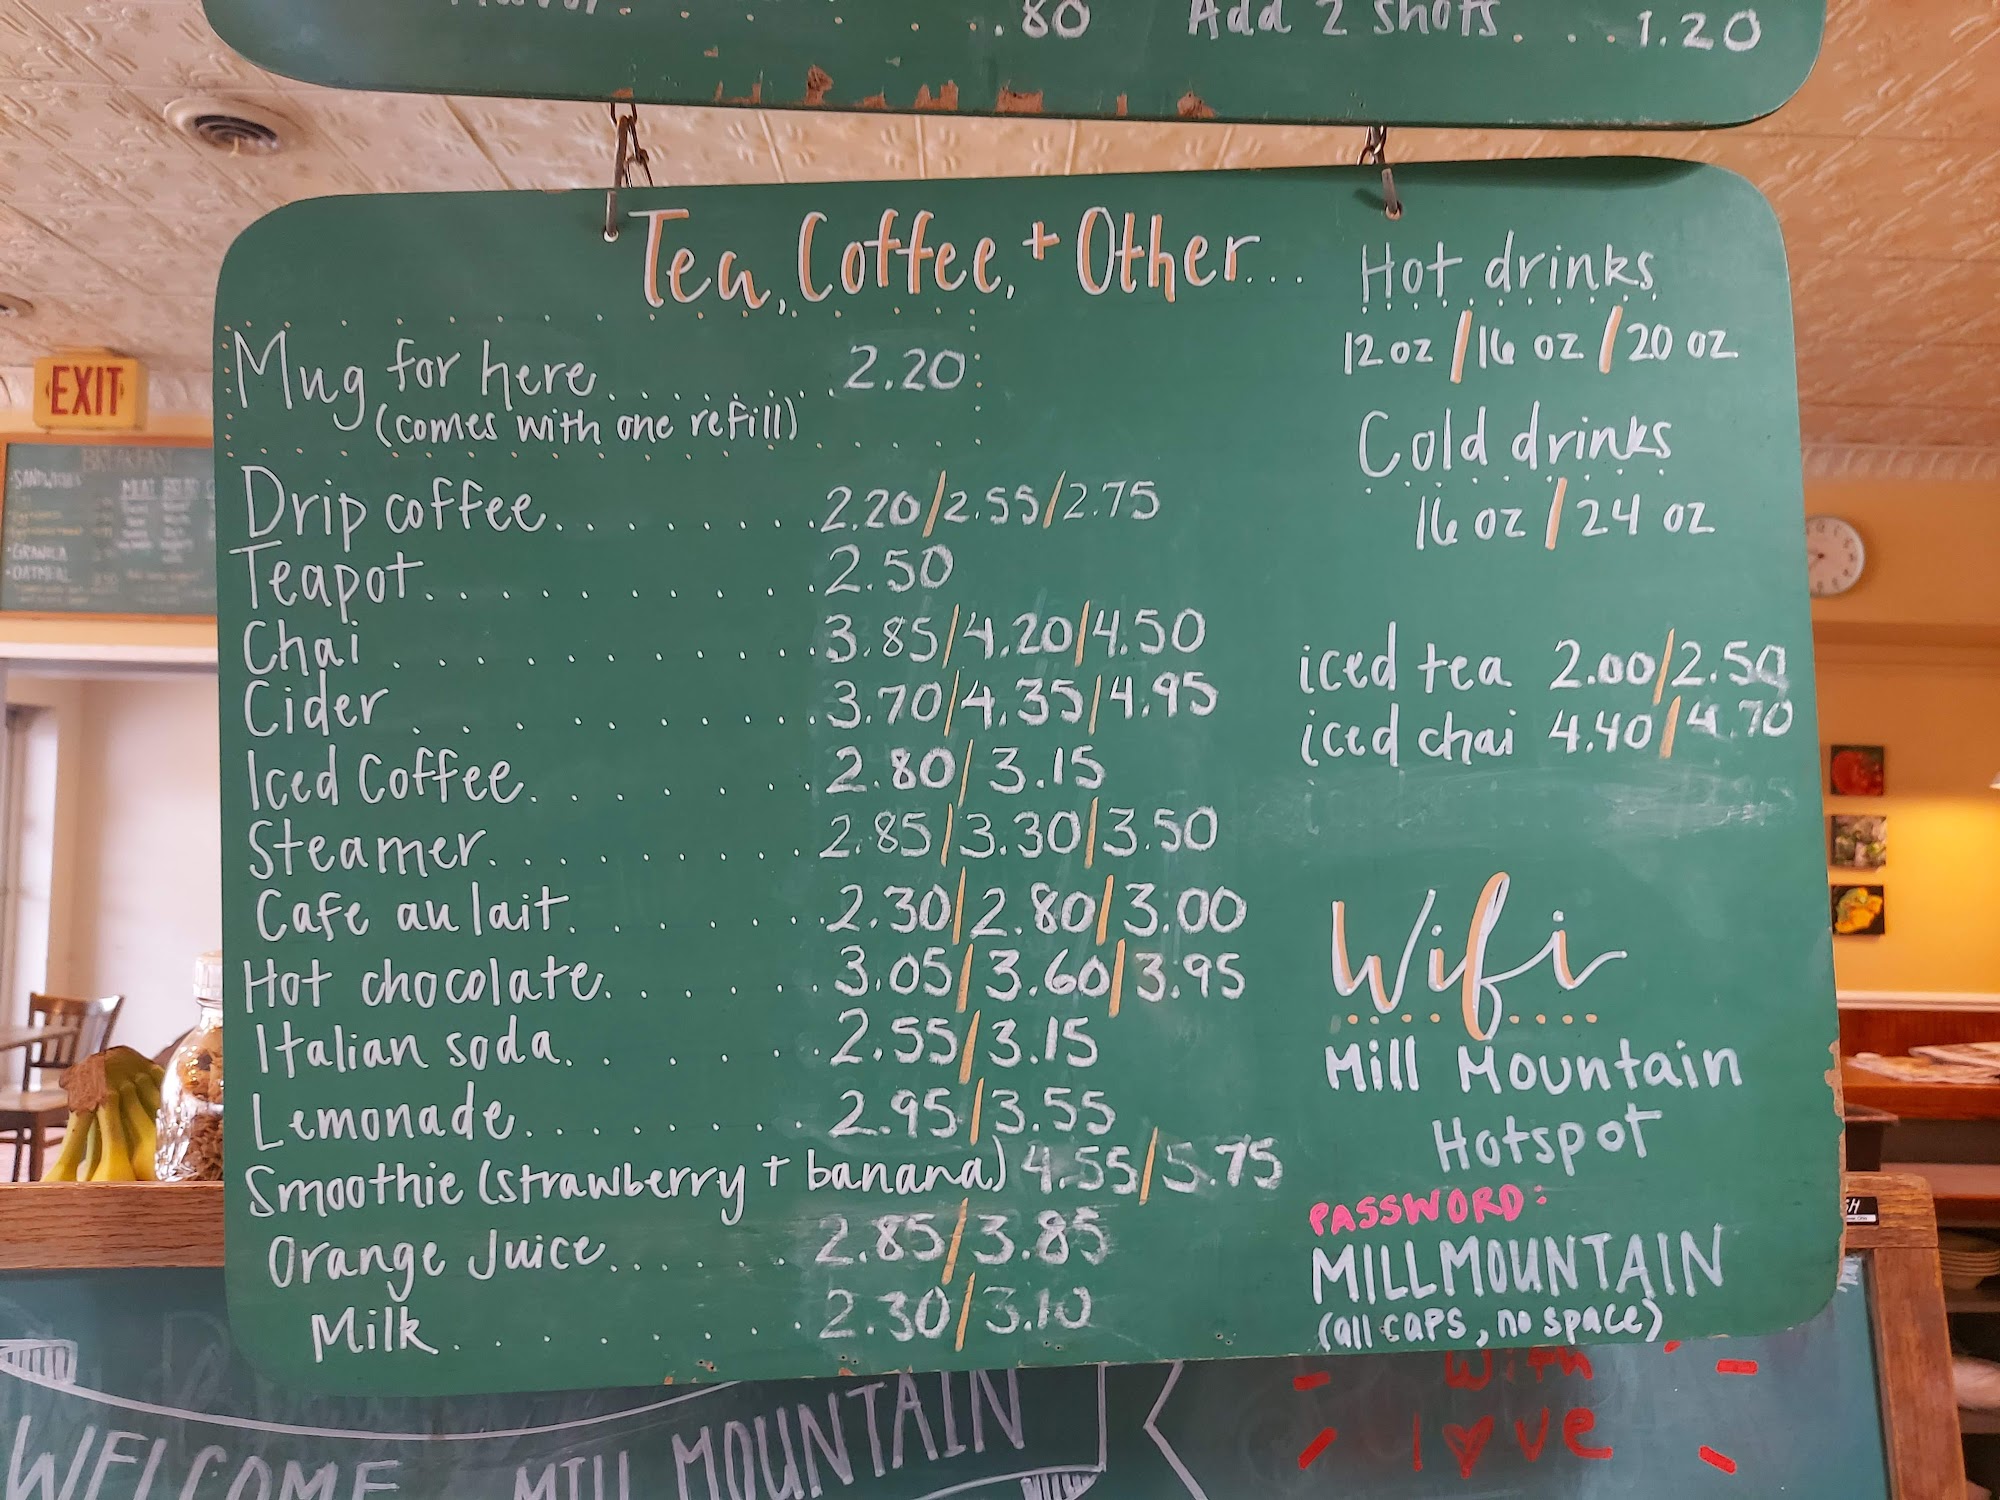 .80 Add 2 shots. . . .1.20
EXIT
BREAKFAST
GRANOLA
OATMEAL
Tea, Coffee, + Other...
Mug for here. . . . . . . . 2.20
(comes with one refill)
Drip coffee. . . . . . . . .2.20/2.55/2.75
Teapot. . . . . . . . . . . .2.50
Chai . . . . . . . . . . . . .3.85/4.20/4.50
Cider . . . . . . . . . . . .3.70/4.35/4.95
Iced Coffee. . . . . . . . 2.80/3.15
Steamer. . . . . . . . . . 2.85/3.30/3.50
Cafe au lait. . . . . . . .2.30/2.80/3.00
Hot chocolate. . . . . . .3.05/3.60/3.95
Italian soda. . . . . . . .2.55/3.15
Lemonade. . . . . . . . . 2.95/3.55
Smoothie (strawberry + banana) 4.55/5.75
Orange Juice. . . . . . 2.85/3.85
Milk. . . . . . . . . . 2.30/3.10
Hot drinks
12 oz/16 oz/20 oz
Cold drinks
16 oz/24 oz
iced tea 2.00/2.50
iced chai 4.40/4.70
Wifi
Mill Mountain
Hotspot
PASSWORD:
MILLMOUNTAIN
(all caps, no space)
WELCOME MILL MOUNTAIN
with
love